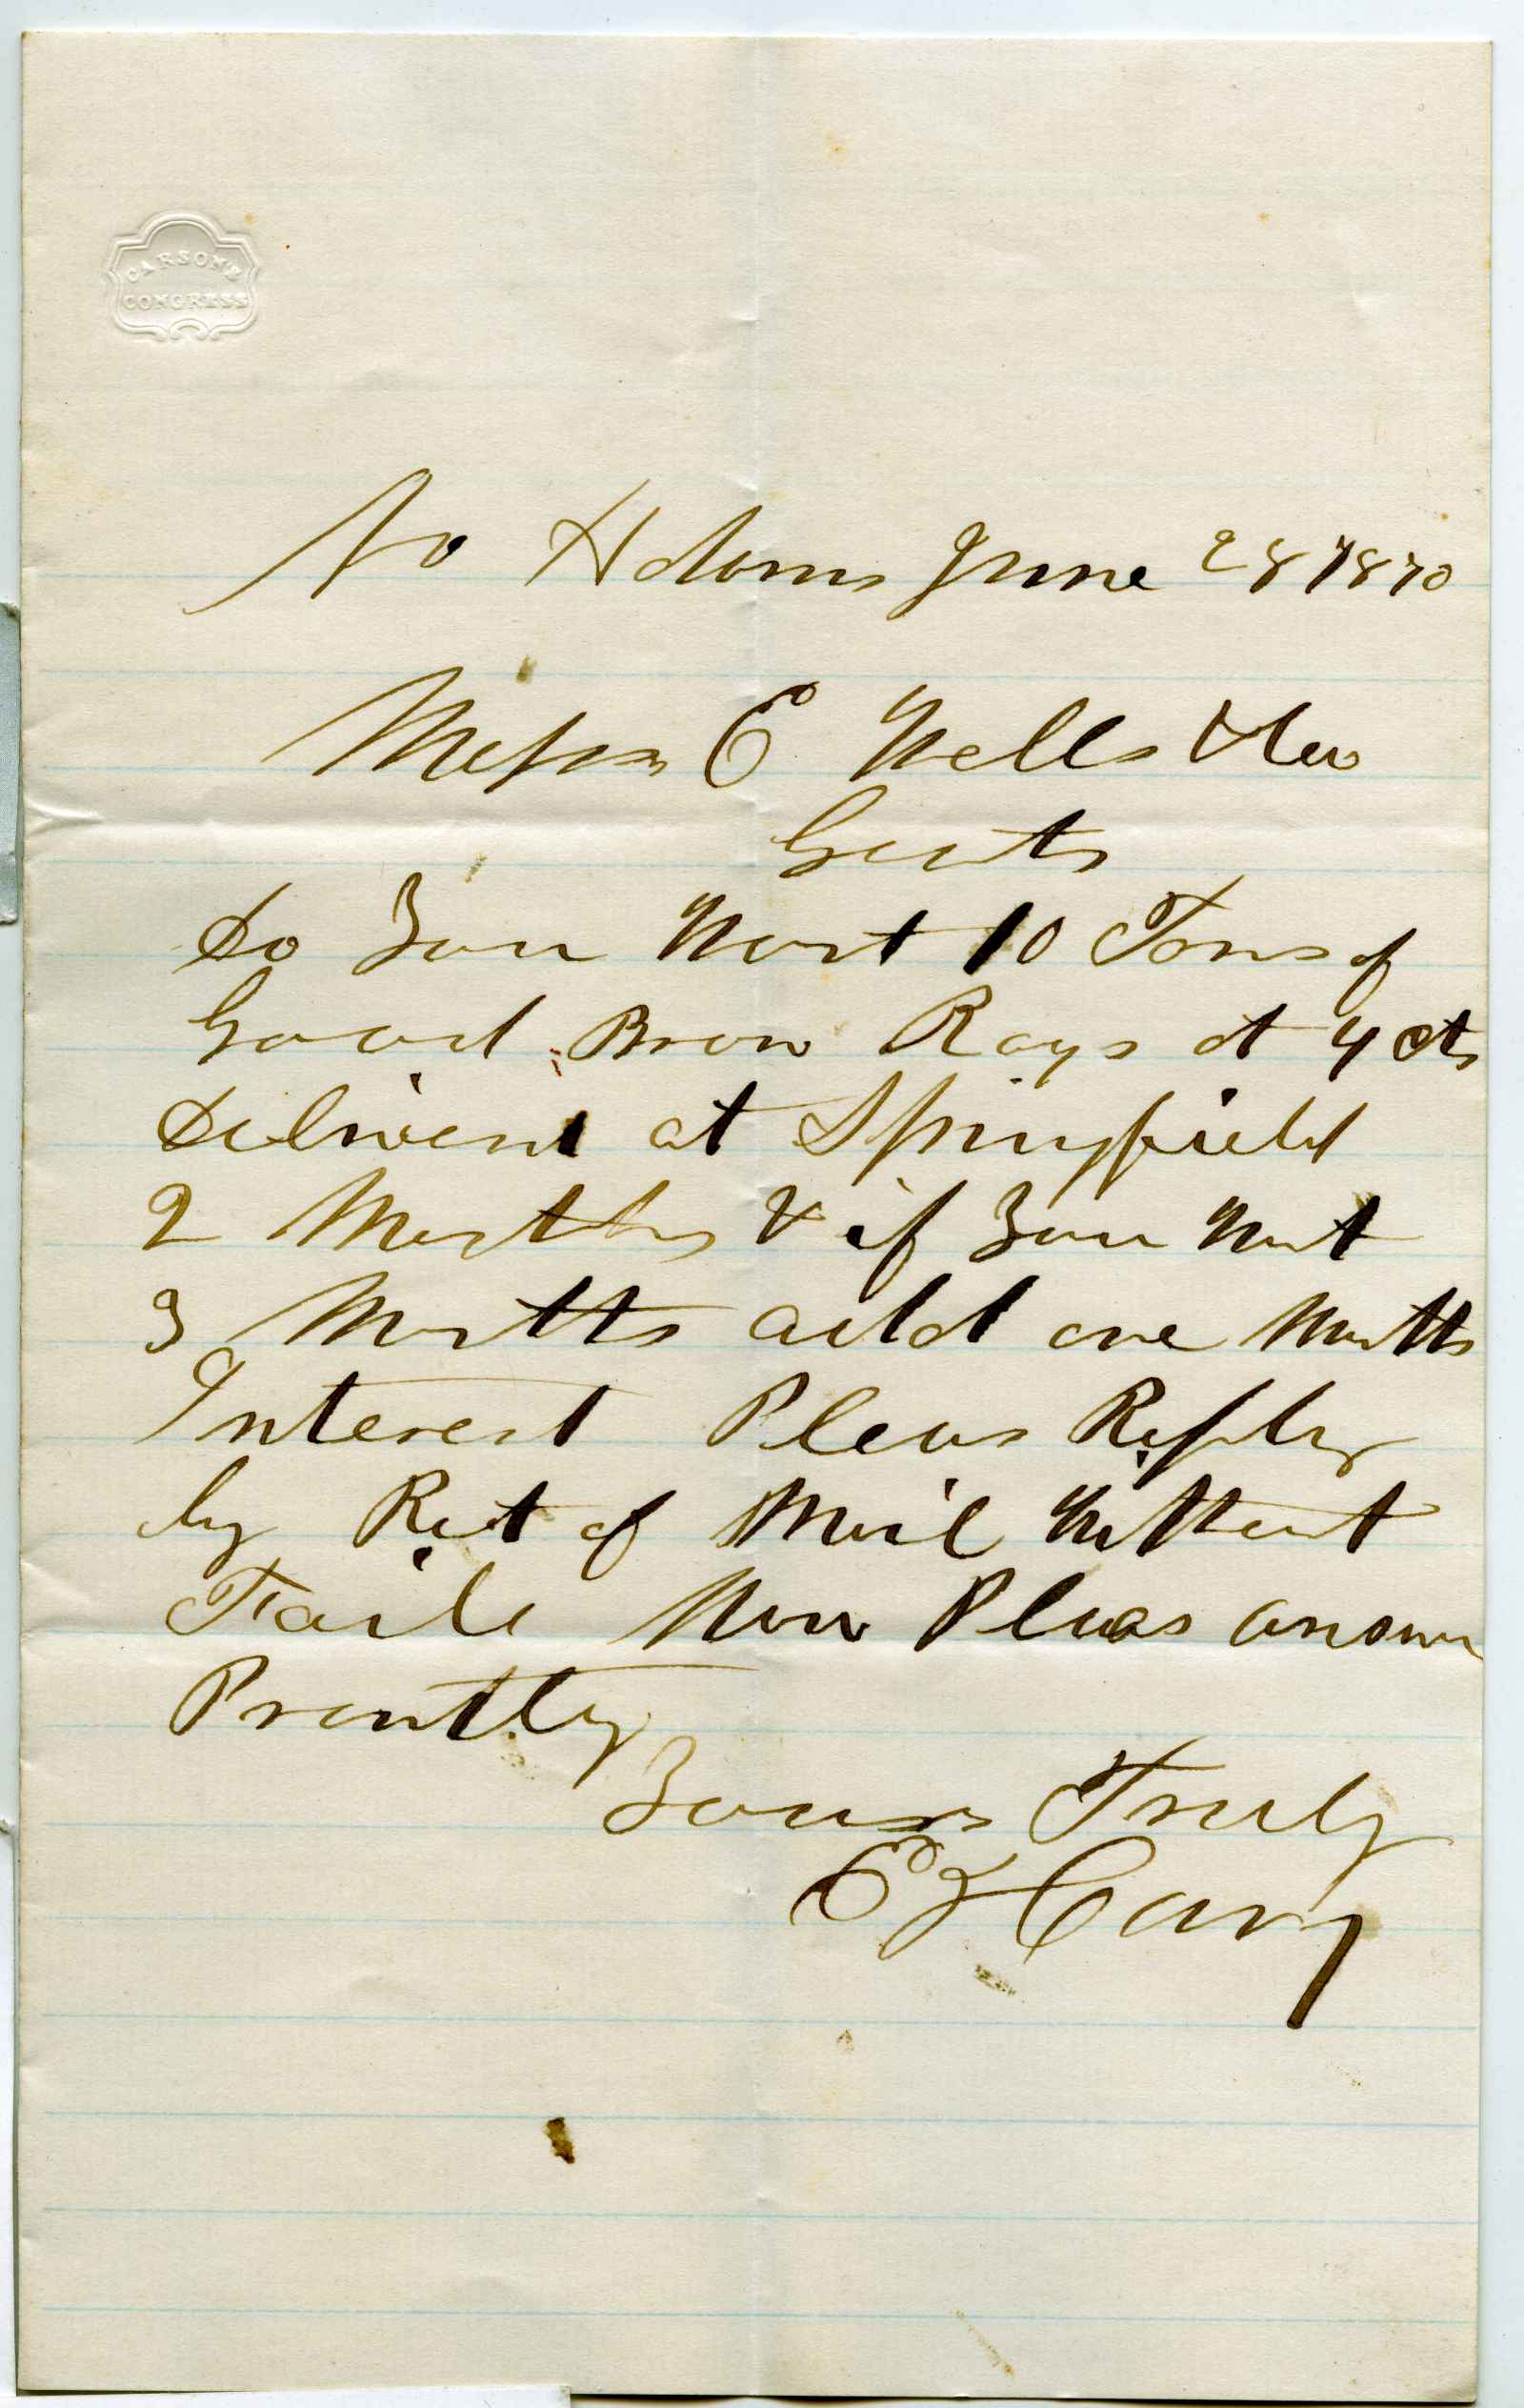 CARSON'S
CONGRESS
No Adams June 28 1870
Messrs E Wells & Co
Gents
Do You Want 10 Tons of
Good Brow Rags at 4 cts
Deliverd at Springfield
2 Months & if You Want
3 Months add one Months
Interest Pleas Reply
by Ret of Mail Without
Faile Now Pleas answer
Promtly
Yours Truly
Cary